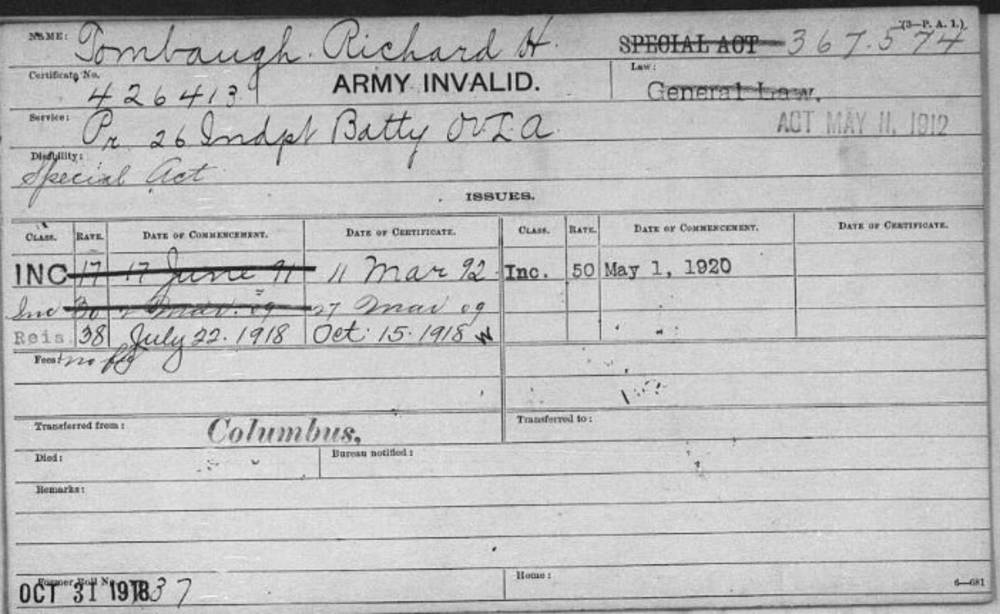 (3—P. A. I.)
NAME: Tombaugh. Richard H. SPECIAL ACT 367.574
Certificate No. 426413 ARMY INVALID. Law: General Law.
Service: Pr 26 Indpt Batty O.V.L.A. ACT MAY 11, 1912
Disability: Special Act
ISSUES.
CLASS. RATE. DATE OF COMMENCEMENT. DATE OF CERTIFICATE. CLASS. RATE. DATE OF COMMENCEMENT. DATE OF CERTIFICATE.
INC 17 17 June 91 11 Mar 92 Inc. 50 May 1, 1920
Inc 30 2 Mar. 09 27 Mar 09
Reis 38 July 22. 1918 Oct. 15. 1918 W
Fees: no
Transferred from: Columbus, Transferred to:
Died: Bureau notified:
Remarks:
Former Roll No. 37 Home:
OCT 31 1918
6—681